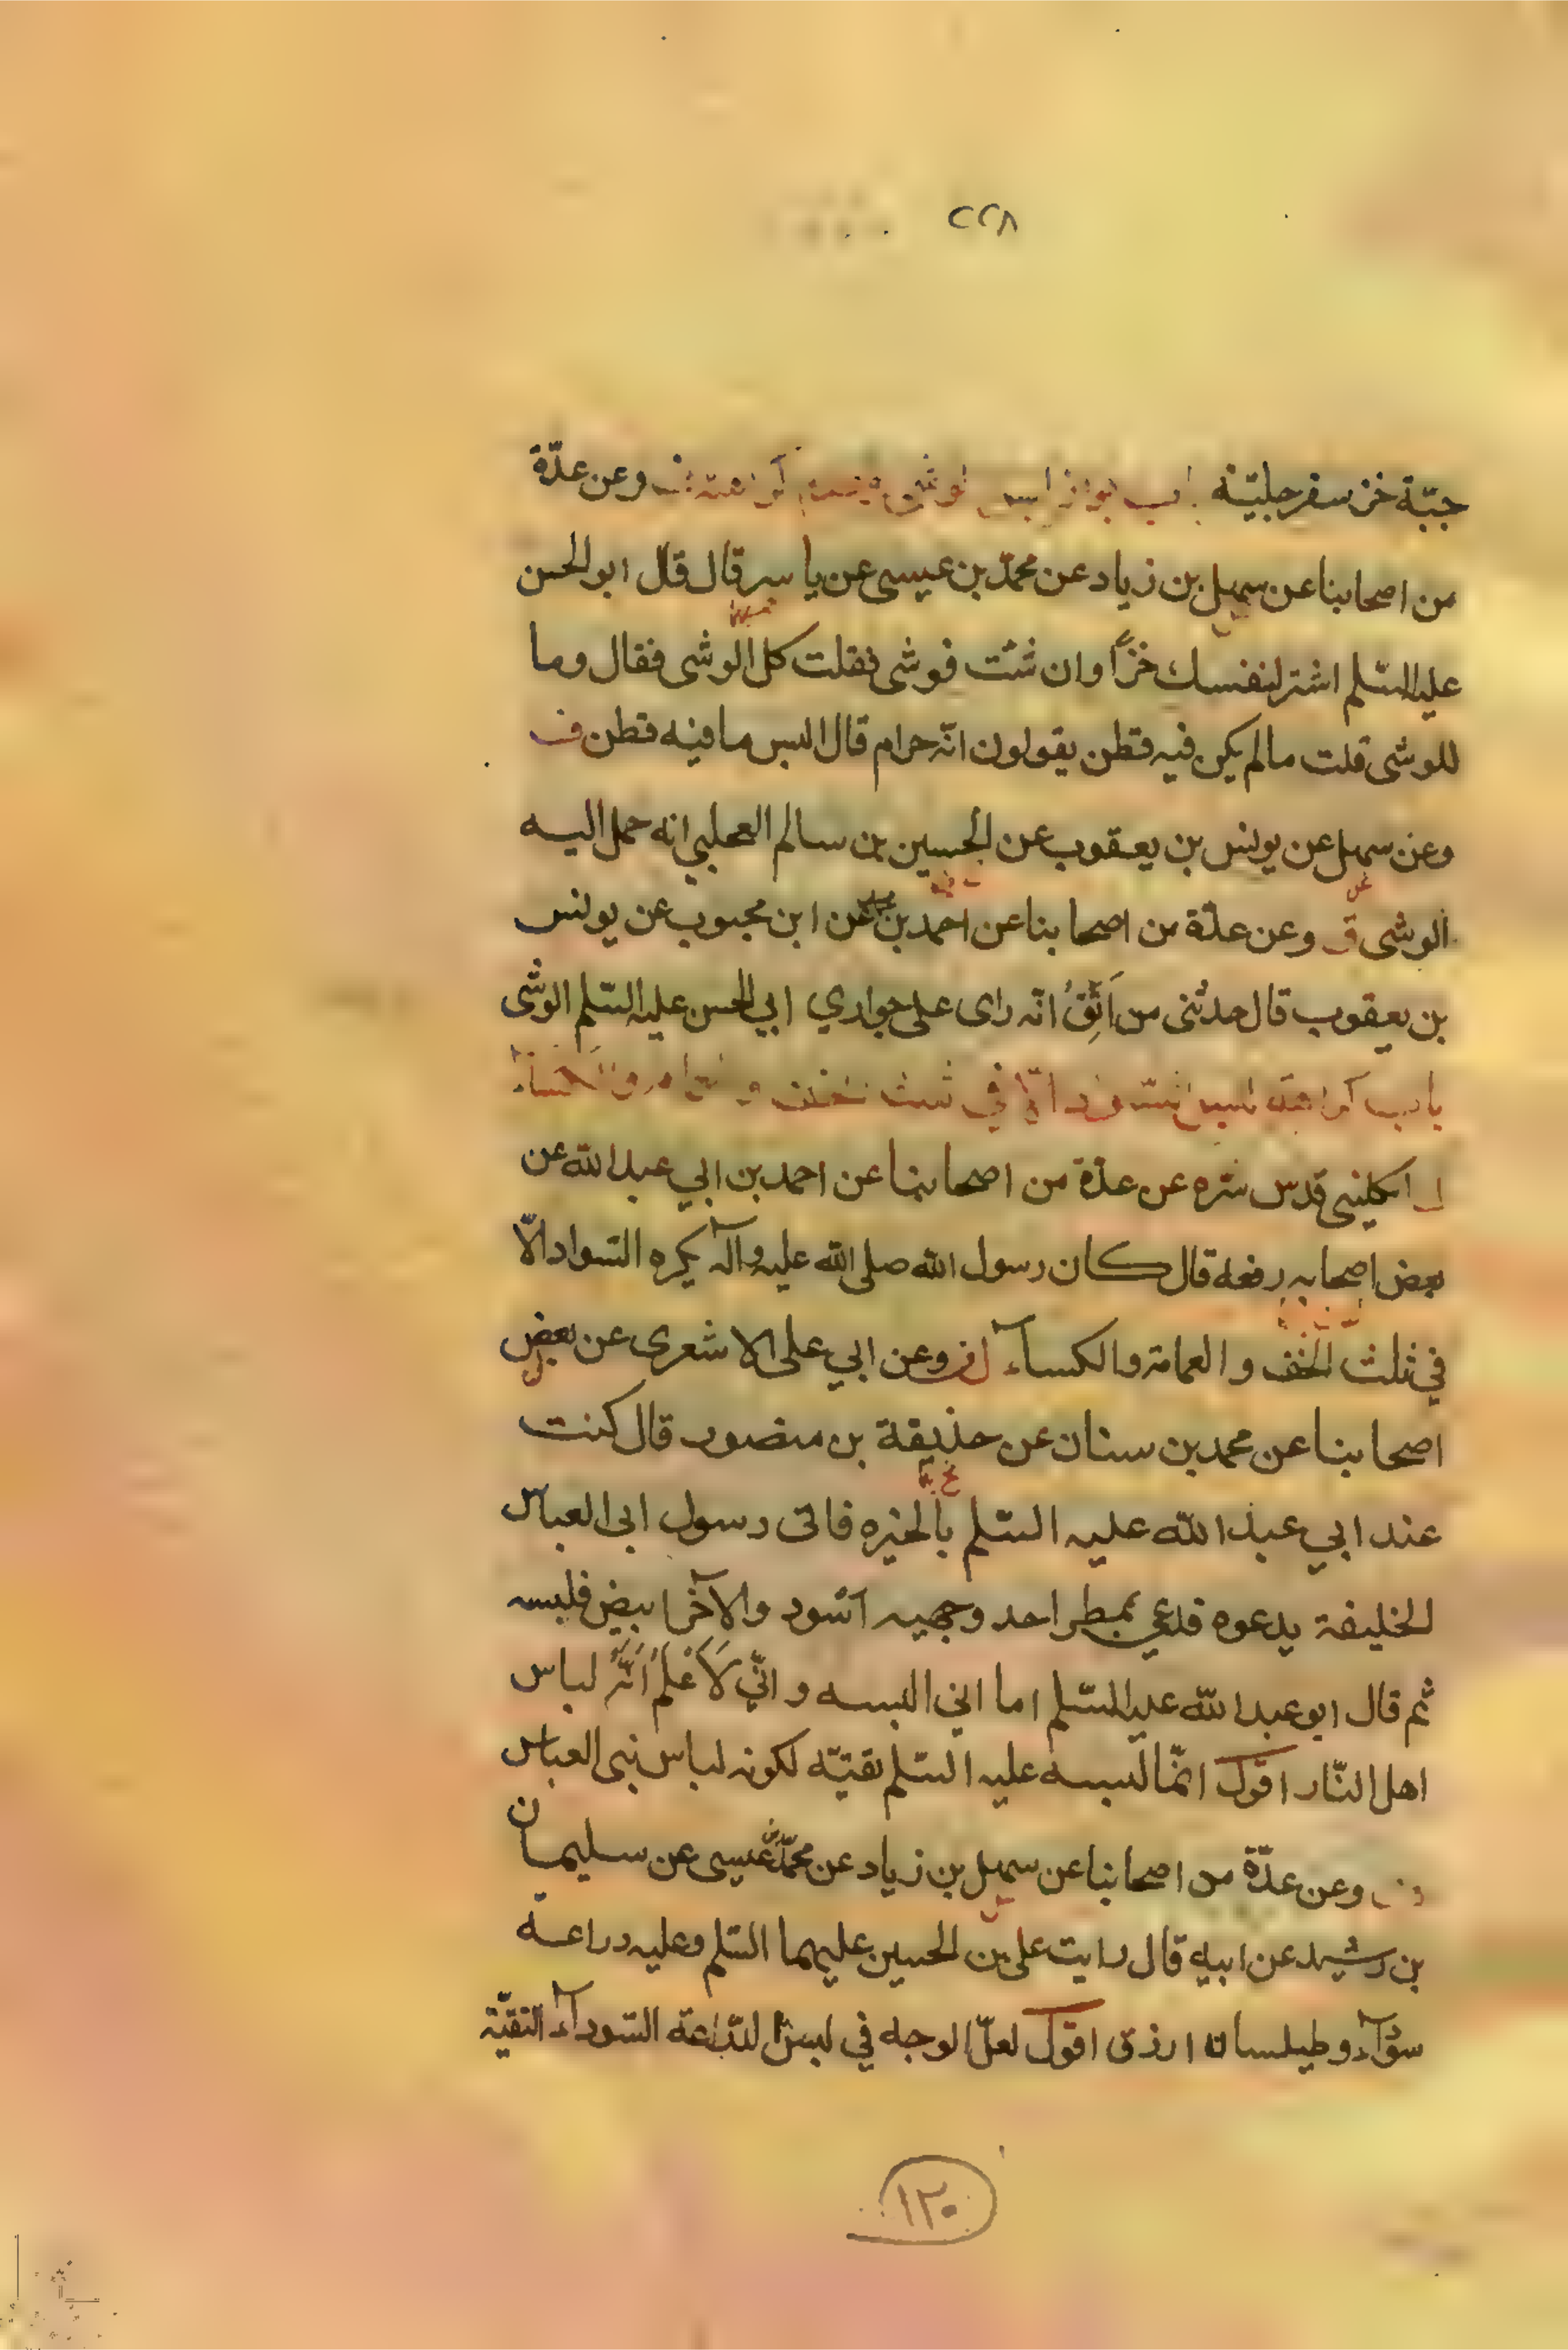 ٢٢٨
جبّة خز سفرجليّة باب جواز لبس الوشي وعن عدّة
من اصحابنا عن سهل بن زياد عن محمّد بن عيسى عن ياسر قال قال ابو الحسن
عليه السّلم اشتر لنفسك خزّاً وان شئت فوشى فقلت كل الوشى فقال وما
للوشى قلت مالم يكن فيه قطن يقولون انّه حرام قال البس ما فيه قطن ف
وعن سهل عن يونس بن يعقوب عن الحسين بن سالم العجلي انه حمل اليه
الوشى ق وعن عدّة من اصحابنا عن احمد بن محمد عن ابن محبوب عن يونس
بن يعقوب قال حدثنى من اَثِقُ انّه راى على جواري ابي الحسن عليه السّلم الوشى
باب كراهة لبس السّواد الّا في ثلث الخف و العمامة والكساء
الكليني قدس سّره عن عدّة من اصحابنا عن احمد بن ابي عبد الله عن
بعض اصحابه رفعه قال كان رسول الله صلى الله عليه وآله يكره السّواد الّا
في ثلث الخف و العمامة والكسآء وعن ابي على الاشعرى عن بعض
اصحابنا عن محمد بن سنان عن حذيفة بن منصور قال كنت
عند ابي عبد الله عليه السّلم بالحيره فاتى رسول ابى العباس
الخليفة يدعوه فدعي بمطر احد وجهيه اسود والآخر ابيض فلبسه
ثم قال ابو عبد الله عليه السّلم اما اني البسه و انّي لَاَعْلَمُ اَنَّهُ لباس
اهل النّار اقول انّما لبسه عليه السّلم تقيّة لكونه لباس بنى العباس
وعن عدّة من اصحابنا عن سهل بن زياد عن محمّد بن عيسى عن سليمان
بن رشيد عن ابيه قال رايت على بن الحسين عليهما السّلم وعليه دراعة
سوداء وطيلسان ازرق اقول لعلّ الوجه في لبس الدّراعة السّودآء التقيّة
١٣٠